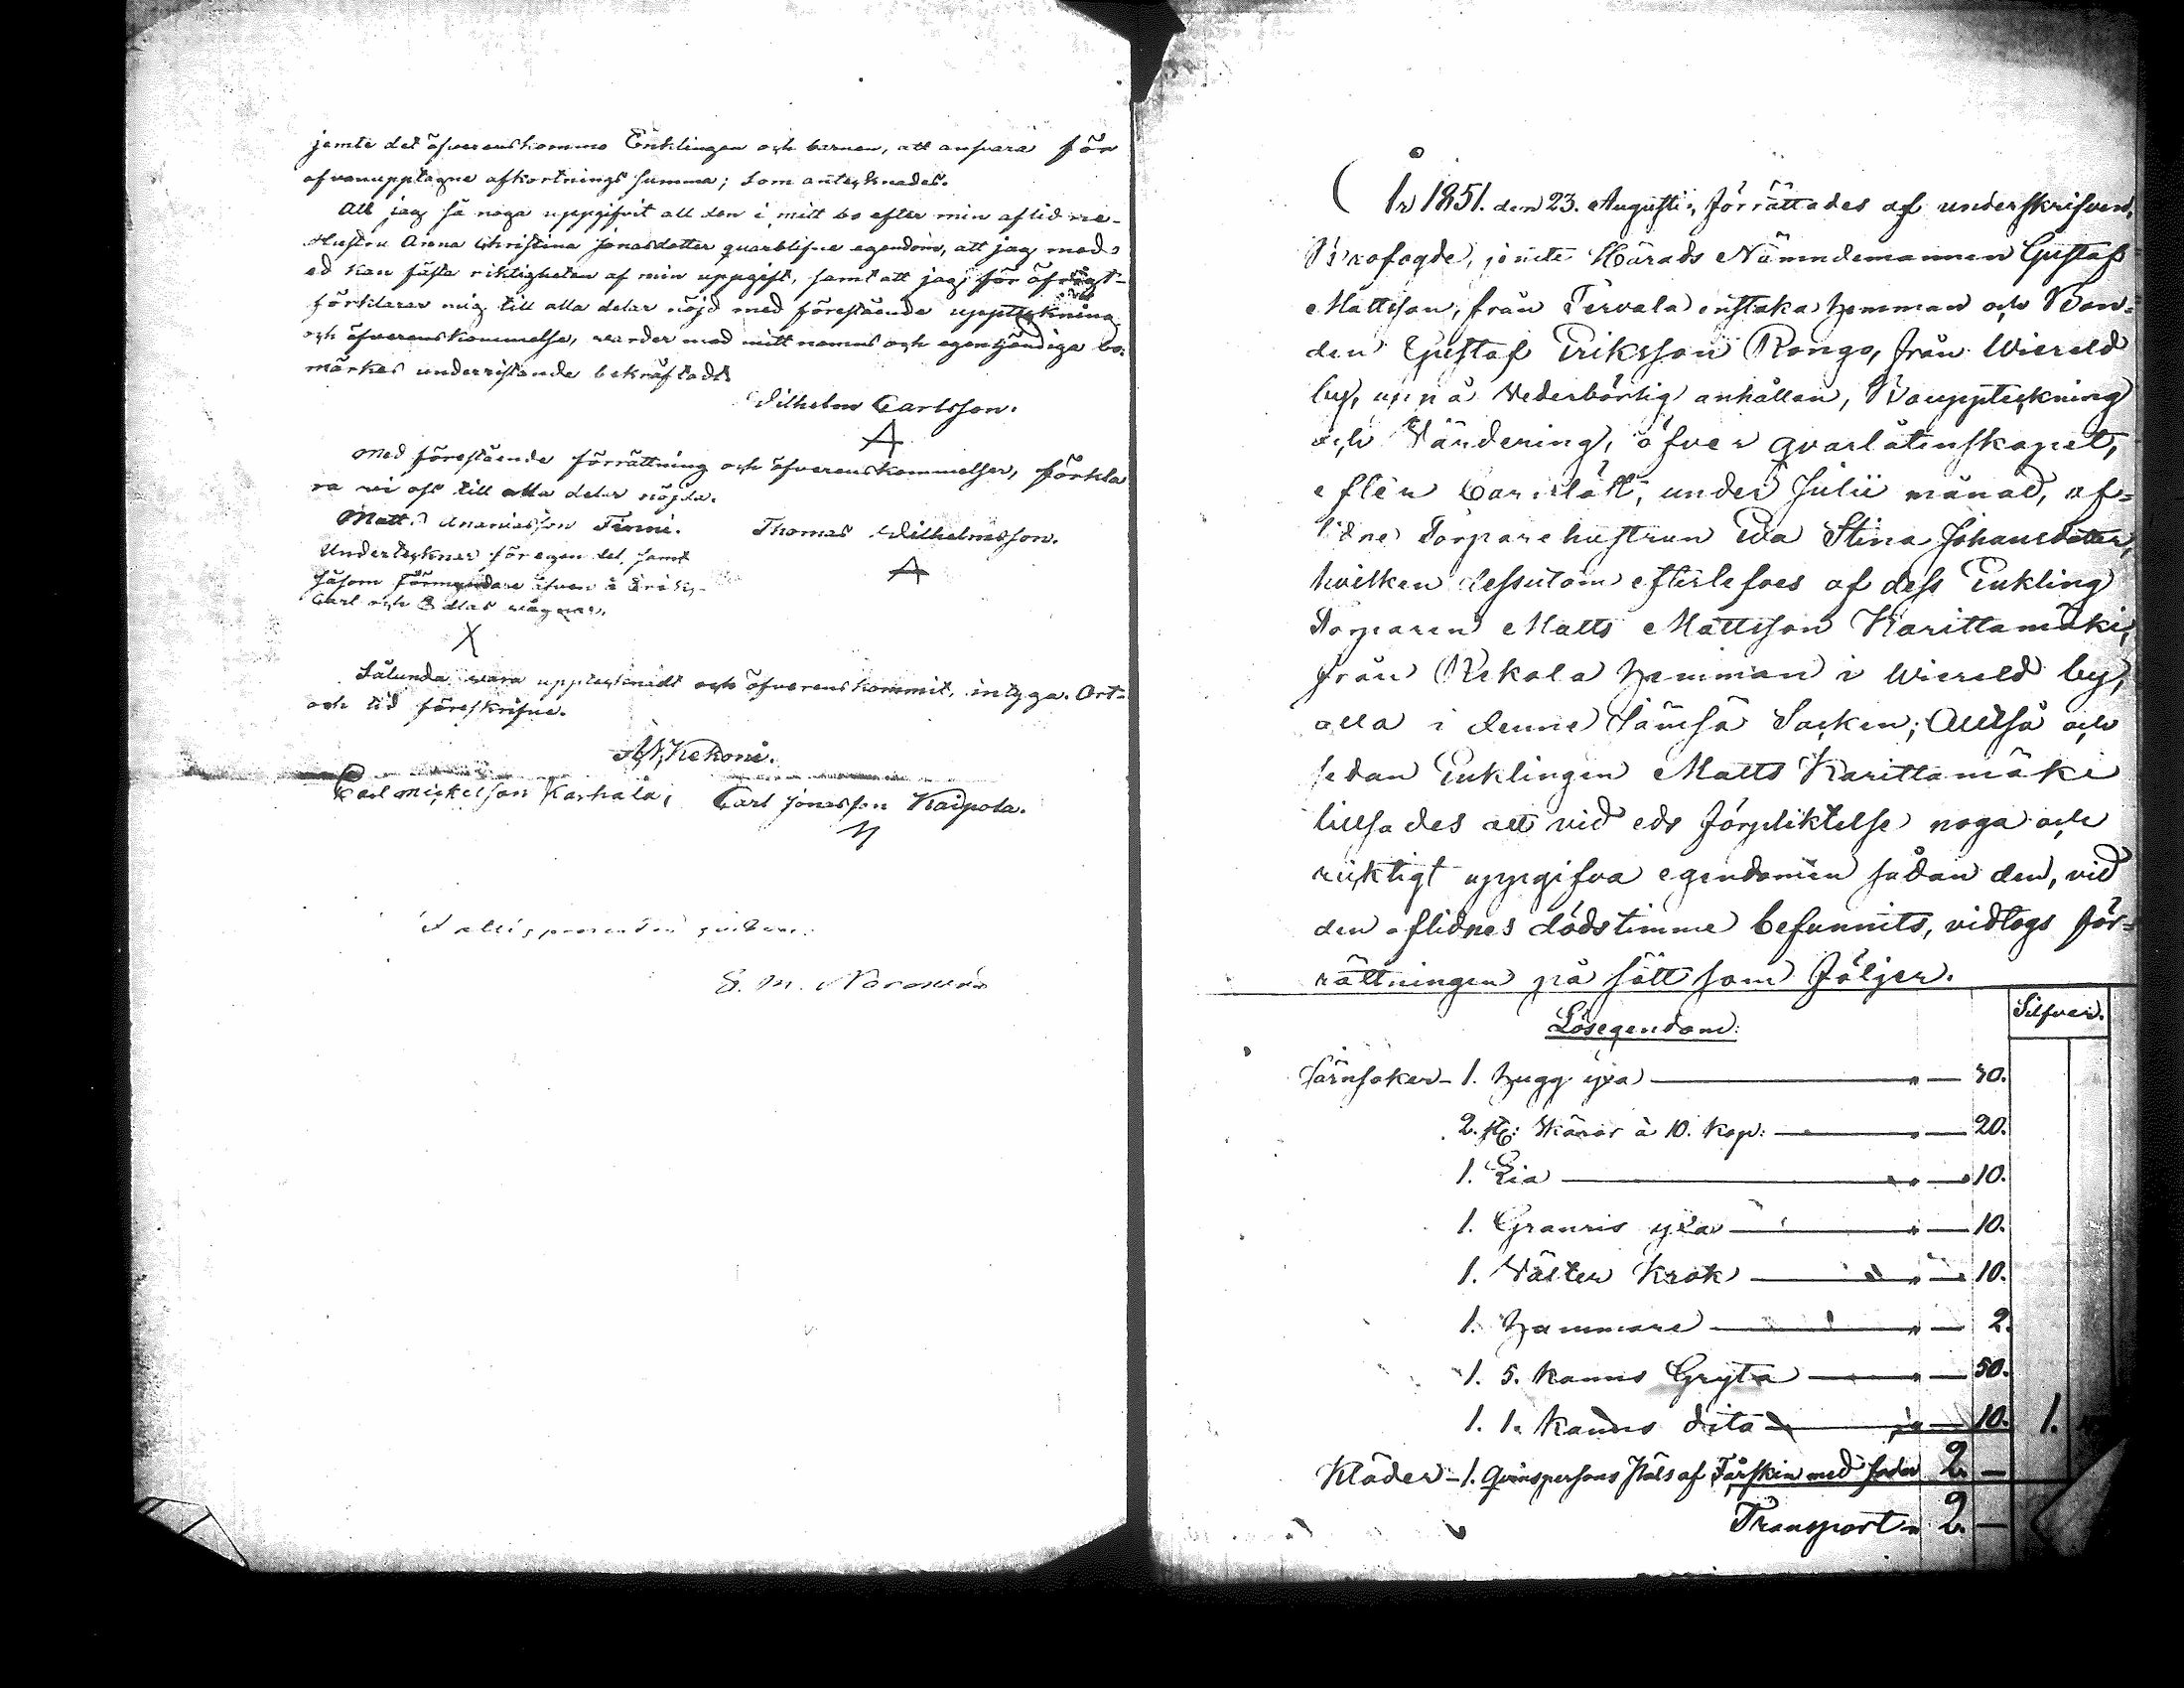 jemte det öfverenskommo Enklingen och barnen, att ansvara för
ofvanupptagne afkortnings summa; som antecknades.
Att jag så noga uppgifvit all den i mitt bo efter min aflidne
Hustru Anna Christina Jonasdotter quarblifne egendom, att jag med
ed kan fästa riktigheten af min uppgift, samt att jag för öfrigt
förklarar mig till alla delar nöjd med förestående uppteckning
och öfverenskommelse, varder med mitt namns och egenhändiga bo-
märkes undersittande bekräftadt
Wilhelm Carlsson.
Med förestående förrättning och öfverenskommelser, förkla
ra vi oss till alla delar nöjda.
Matts Ananiasson Tiemi. Thomas Wilhelmsson.
Undertecknar för egen del, samt
såsom förmyndare äfven å
Carl och vägnar.
X
Sålunda vara upptecknadt och öfverenskommit, intyga. Ort
och tid föreskrifne.
Kekoni.
Carl Mickelsson Karhala, Carl Jonasson Kaipola.
S. M.
År 1851. den 23. Augusti, förrättades af underskrifven,
Brofogde, jemte Härads Nämndemannen Gustaf
Mattsson, från Tervala enstaka hemman och Bon-
den Gustaf Eriksson Rongo, från Wiereld
by, uppå vederbörlig anhållan, Bouppteckning
och Värdering, öfver qvarlåtenskapet,
efter barnlått, under Julii månad, af-
lidne Torpare hustrun Eva Stina Johansdotter,
hvilken dessutom efterlefves af dess Enkling
Torparen Matts Mattsson Karittamäki,
från Rekola hemman i Wiereld by,
alla i denne Jämsä Socken; Alltså och
sedan Enklingen Matts Karittamäki
tillsades att vid eds förpliktelse noga och
ricktigt uppgifva egendomen sådan den, vid
den aflidnes dödstimme befunnits, vidtogs för-
rättningen på sätt som följer.
Silfver.
Lösegendom:
Järnsaker - 1. hugg yxa — " — 30.
2. st: Skäror à 10. Kop: — " — 20.
1. Lia — " — 10.
1. Granris yxa — " — 10.
1. Väster Krok — " — 10.
1. hammare — " — 2.
1. 5. Kanns Gryta — " — 50.
1. 1. Kanns dito — " — 10. 1.
Kläder - 1. Qvinspersons Päls af Fårskin med foder 2 —
Transport " 2 —